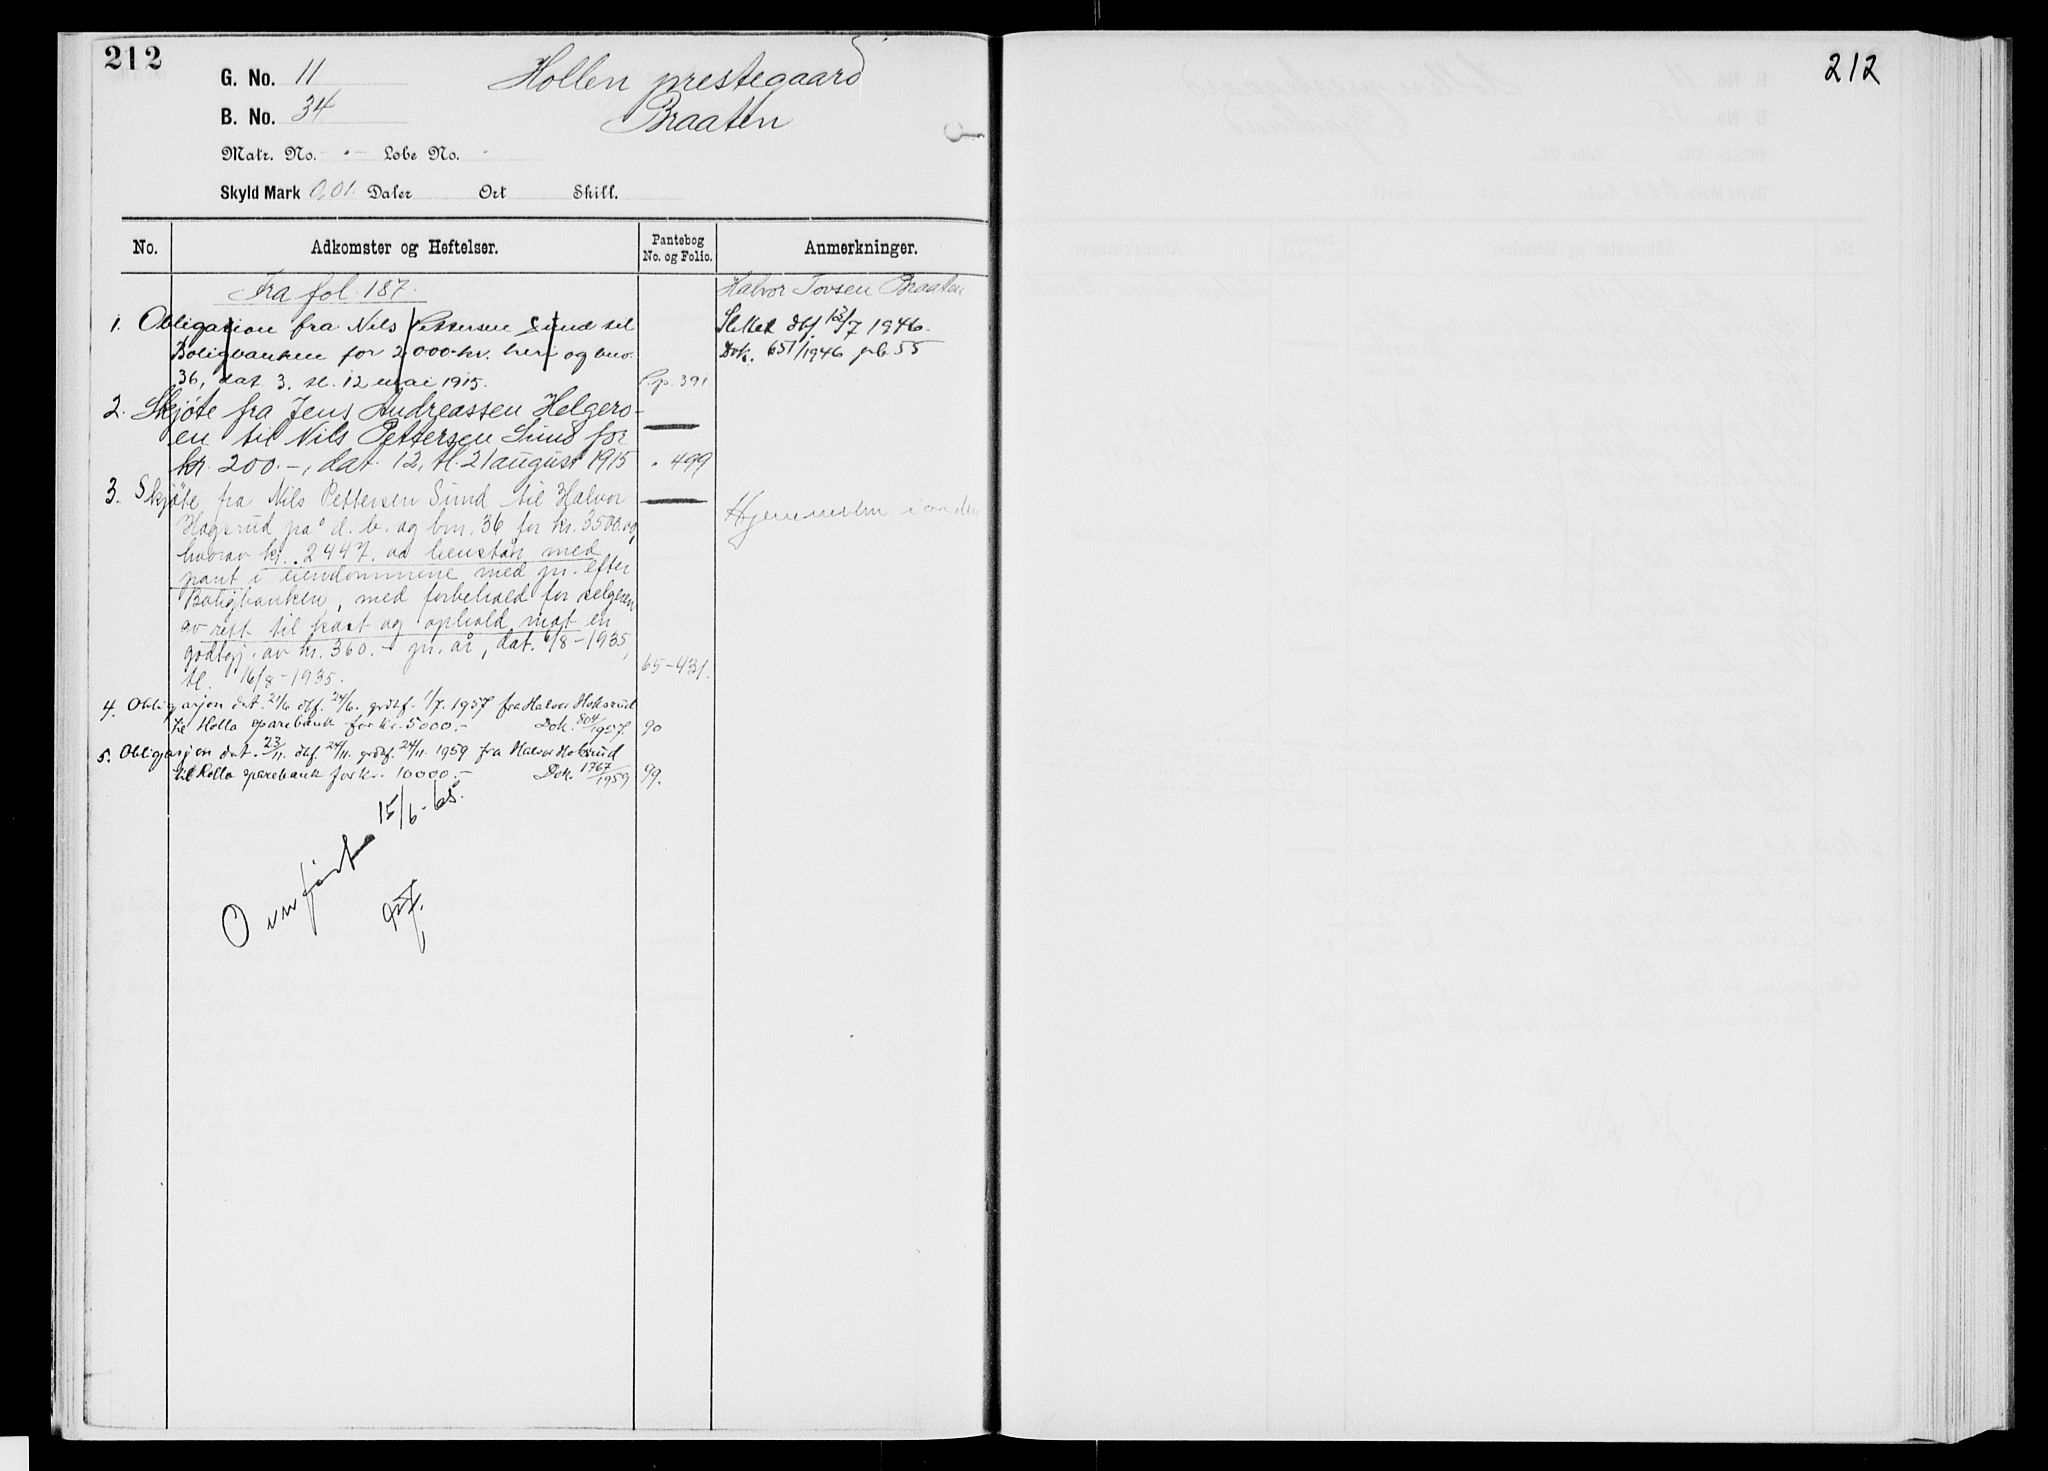 212
212
G. No. 11
Hollen prestegaard
B. No. 34
Braaten
Matr. No. - Løbe No. -
Skyld Mark 0,01. Daler Ort Skill.
No.
Adkomster og Heftelser.
Pantebog No. og Folio.
Anmerkninger.
Fra fol. 187.
Halvor Tovsen Braaten
1. Obligasion fra Nils Pettersen Sund til
Boligbanken for 2000 kr. heri og bno.
36, dat. 3. tl. 12 mai 1915. P.p. 391.
Slettet dbf /7 1946.
Dok. 651/1946 pb 55
2. Skjöte fra Jens Andreassen Helgero-
en til Nils Pettersen Sund for
kr. 200.-, dat. 12, tl. 21 august 1915 " 499
3. Skjöte fra Nils Pettersen Sund til Halvor
Hogsrud på d. b. og bnr. 36 for kr. 3500.00,
hvorav kr. 2447.00 henstår med
pant i eiendommene med pr. efter
Boligbanken, med forbehold for selgeren
av rett til kost og ophold mot en
godtgj. av kr. 360.- pr. år, dat. 6/8-1935,
tl. 16/8-1935. 65-431.
Hjemmelen i orden
4. Obligasjon dat. 21/6 dbf. 24/6. grdbf. 1/7. 1957 fra Halvor Hoksrud
til Holla sparebank for kr. 5000.- Dok. 804/1957. 90
5. Obligasjon dat. 23/11. dbf. 24/11. grdbf. 24/11. 1959 fra Halvor Hoksrud
til Holla sparebank for kr. 10000.- Dok. 1767/1959 99.
Overført 15/6-65.